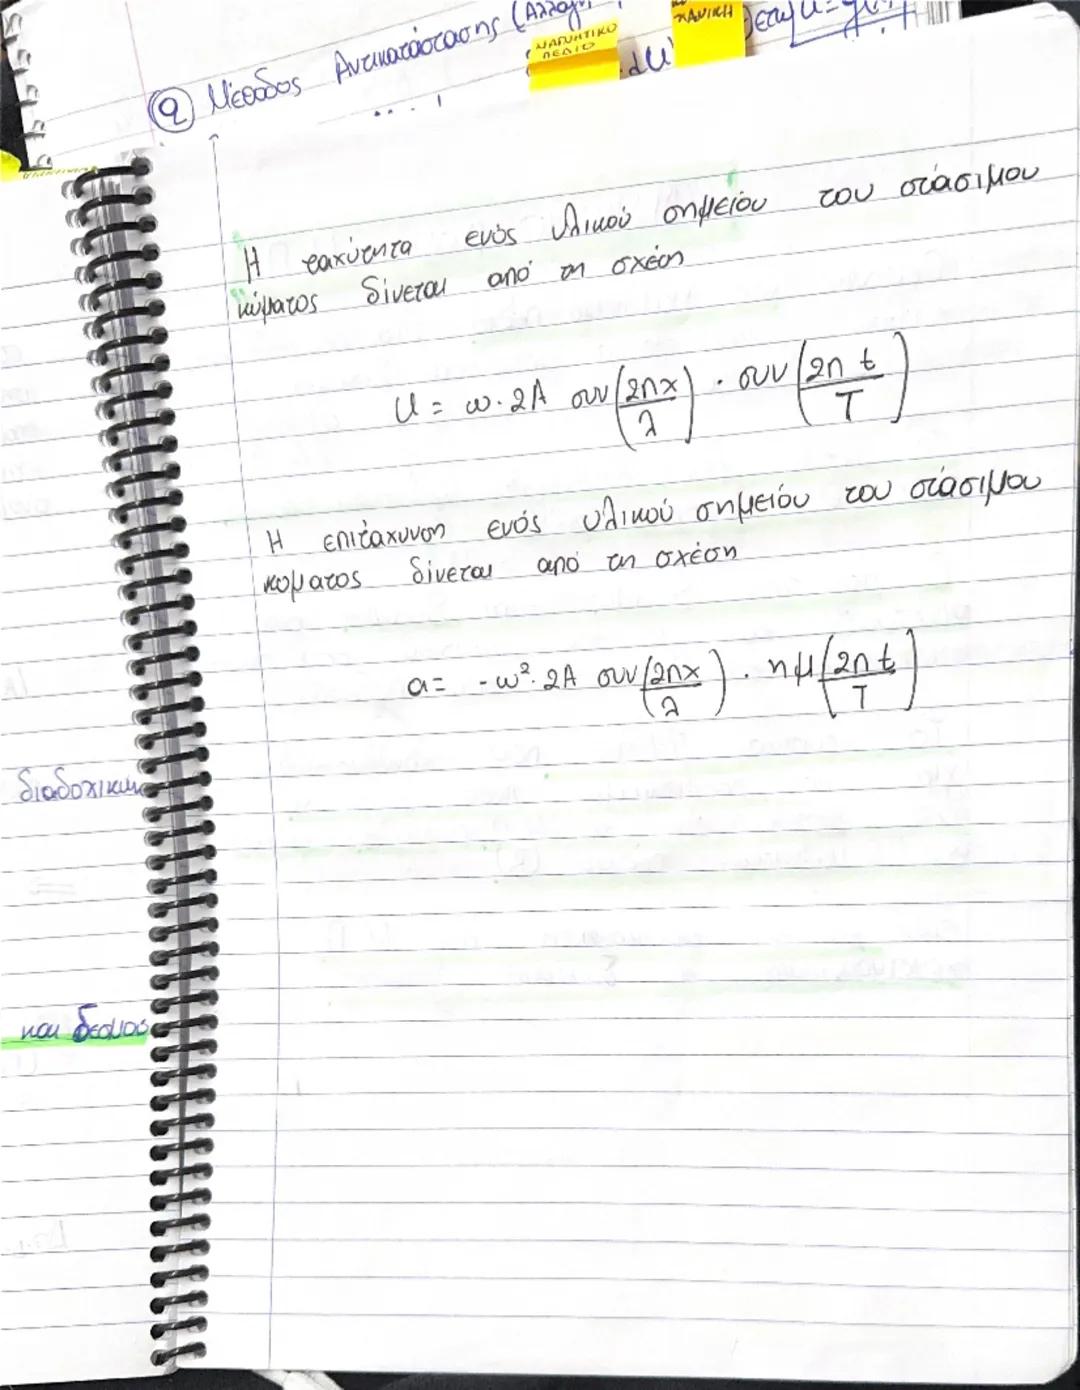 ② Μέθοδος Αντικατάστασης (Αλλαγή
ΜΑΓΝΗΤΙΚΟ
ΠΕΔΙΟ
du
Η ταχύτητα ενός υλικού σημείου του στάσιμου
κύματος δίνεται από τη σχέση
U = ω·2A συν(2πx/λ) · συν(2πt/T)
Η επιτάχυνση ενός υλικού σημείου του στάσιμου
κύματος δίνεται από τη σχέση
a = -ω²·2A συν(2πx/λ) · ημ(2πt/T)
διαδοχικών
και δεσμός